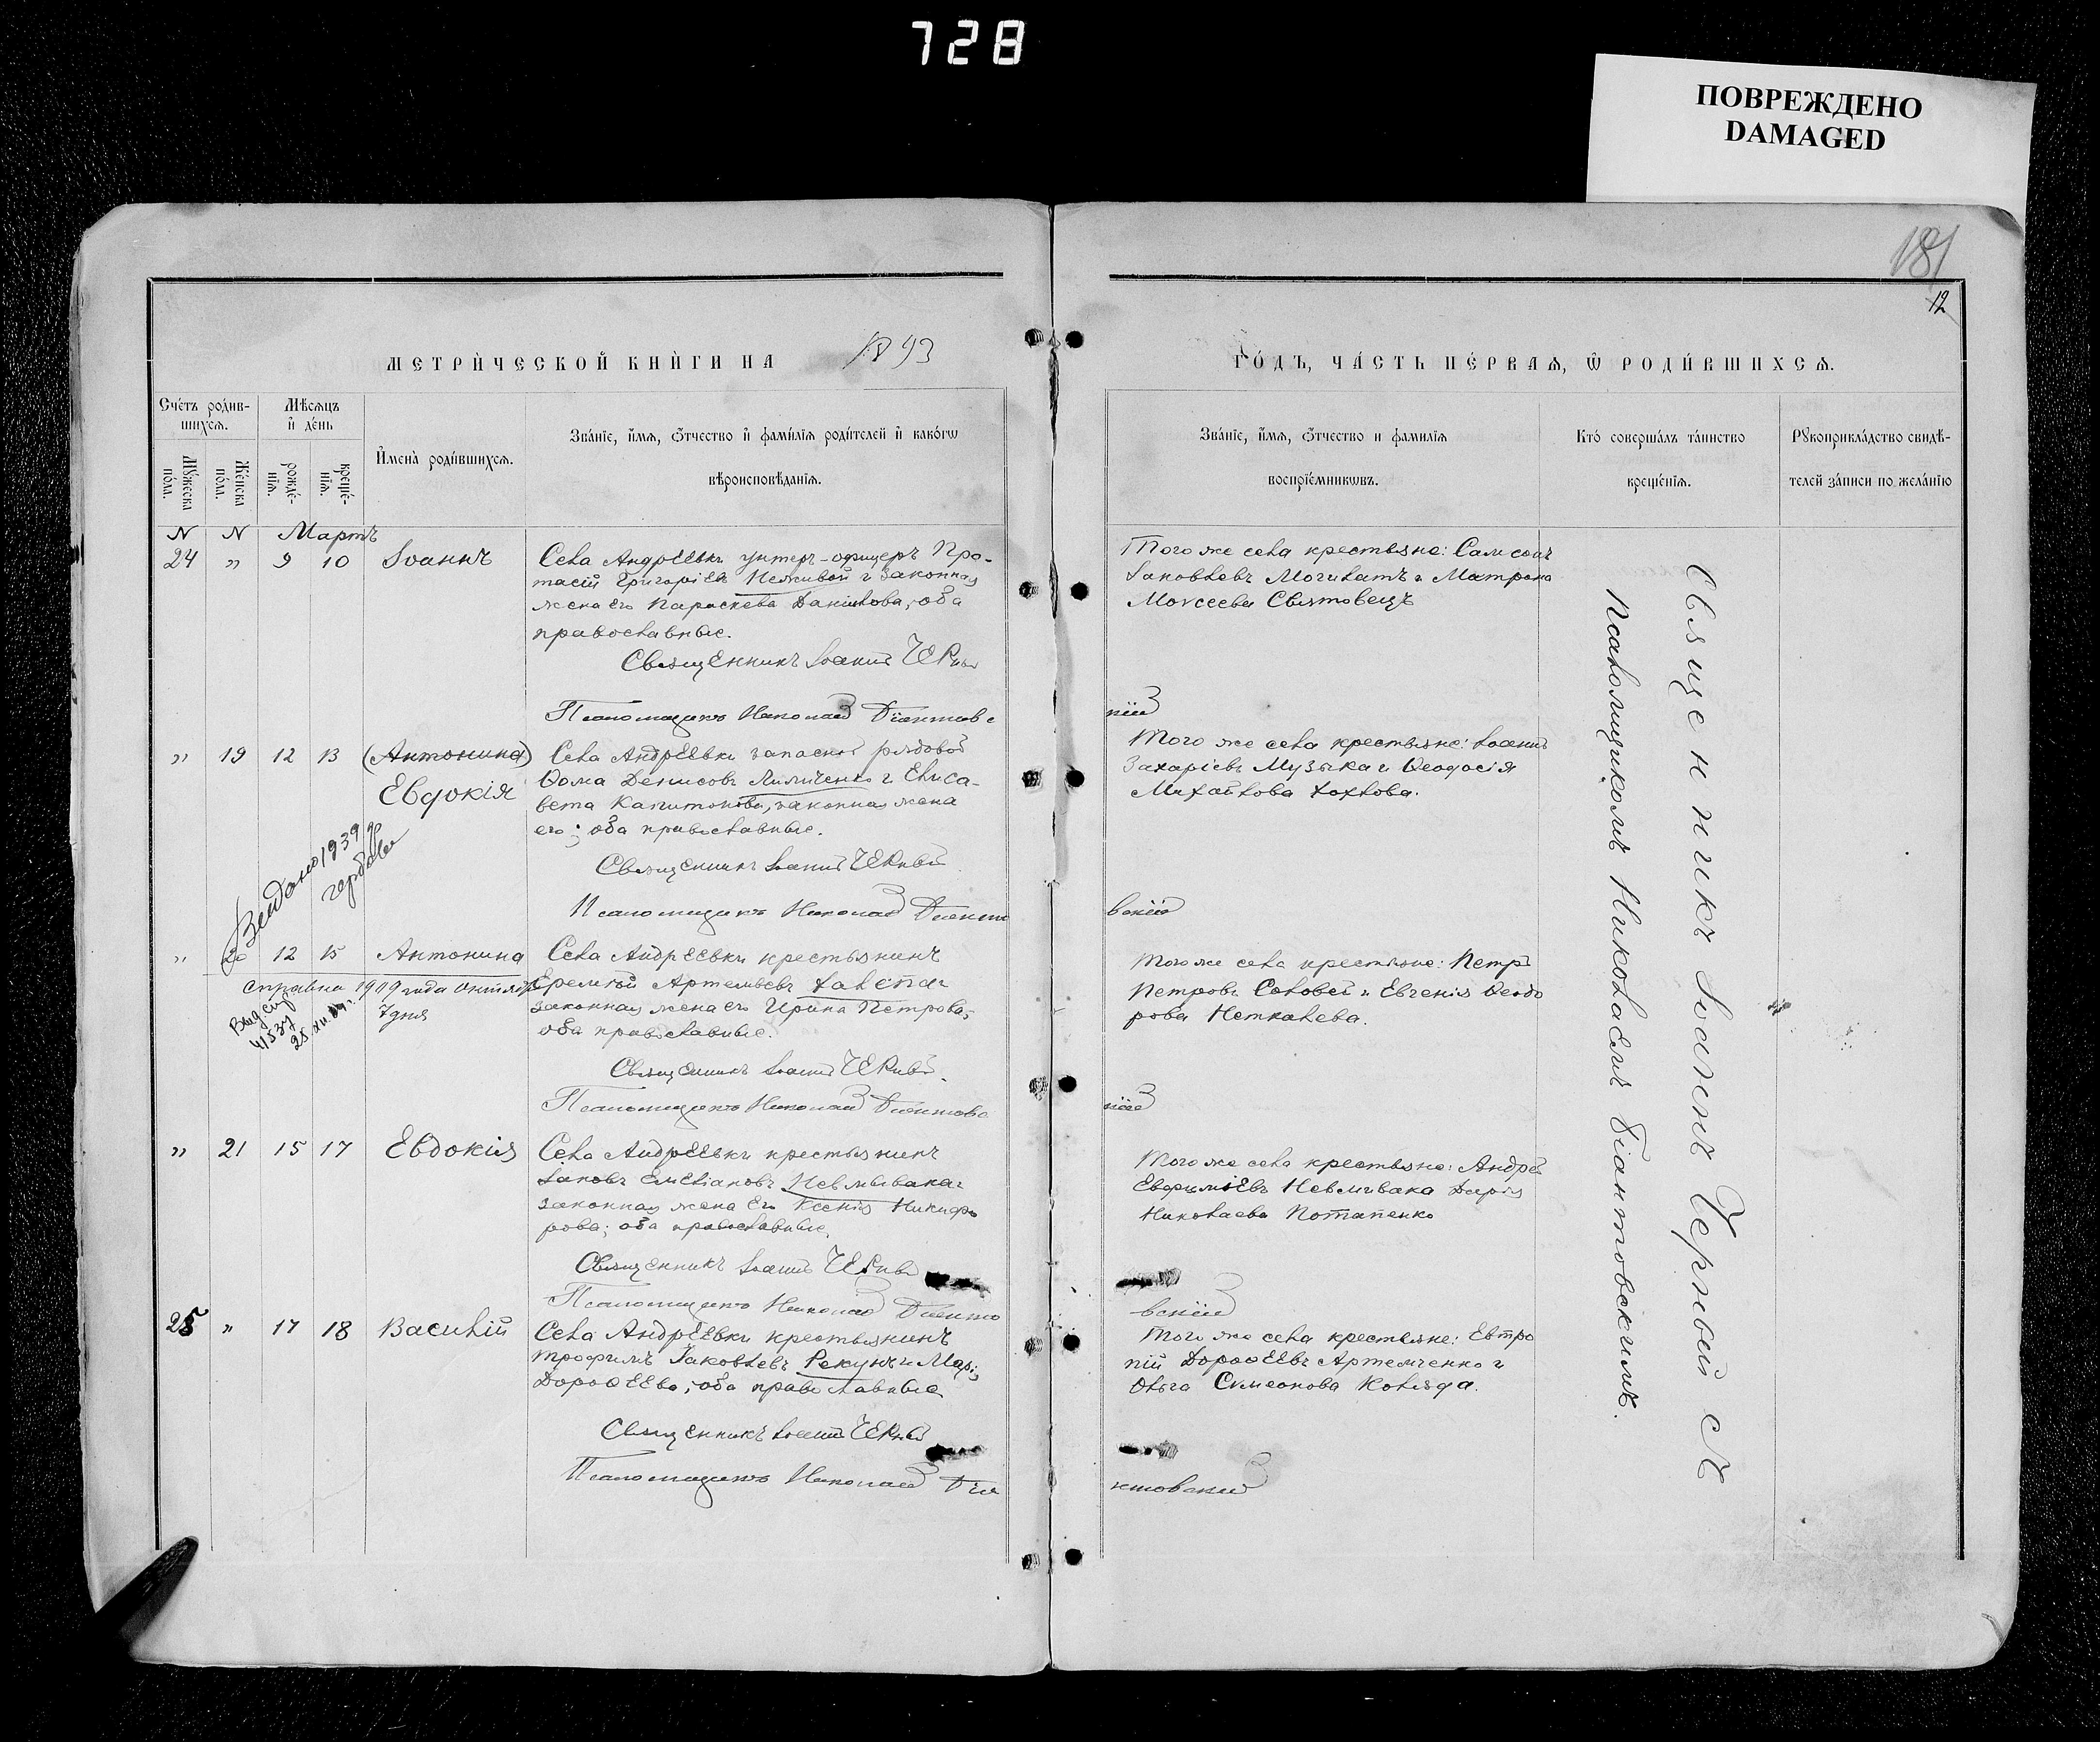 728
ПОВРЕЖДЕНО
DAMAGED
181
12
МЕТРИ́ЧЕСКОЙ КНИ́ГИ НА 1893
ГО́ДЪ, ЧА́СТЬ ПЕ́РВАѦ, Ѿ РОДИ́ВШИХСѦ.
Сче́тъ роди́в-
шихсѧ.
Мꙋ́жеска по́ла.
Же́нска по́ла.
Мѣ́сѧцъ
и҆ де́нь
рожде́-
нїѧ.
креще́-
нїѧ.
И҆мена̀ роди́вшихсѧ.
Зва́нїе, и҆́мѧ, ѻ҆́тчество и҆ фами́лїѧ роди́телей и҆ како́гѡ
вѣроисповѣ́данїѧ.
Зва́нїе, и҆́мѧ, ѻ҆́тчество и фамилїѧ
воспрїе́мникѡвъ.
Кто́ соверша́лъ та́инство
креще́нїѧ.
Рꙋкоприкла́дство свидѣ́-
телей за́писи по жела́нїю
N N Мартъ
24 " 9 10 Іоаннъ
Села Андрѣевки унтеръ-офицеръ Про-
тасій Григоріевъ Неживой и законная
жена его Параскева Данилова; оба
православные.
Священникъ Іоаннъ Черный
Псаломщикъ Николай Біантовскій
Того же села крестьяне: Самсонъ
Іаковлевъ Могилатъ и Матрона
Моисеева Святовецъ
" 19 12 13 (Антонина)
Евдокія
Села Андрѣевки запасной рядовой
Ѳома Денисовъ Лимиченко и Елиса-
вета Капитонова, законная жена
его; оба православные.
Священникъ Іоаннъ Черный
Псаломщикъ Николай Біантовскій
Того же села крестьяне: Іоаннъ
Захаріевъ Музыка и Ѳеодосія
Михайлова Хохлова.
Выдано 1939 г
" 20 12 15 Антонина
Справка 1909 года октября
7 дня
Села Андрѣевки крестьянинъ
Еремѣй Артемьевъ Халепа и
законная жена его Ирина Петрова;
оба православные.
Священникъ Іоаннъ Черный.
Псаломщикъ Николай Біантовскій
Того же села крестьяне: Петръ
Петровъ Соловей и Евгенія Ѳеодо
рова Неткалева.
" 21 15 17 Евдокія
Села Андрѣевки крестьянинъ
Іаковъ Емеліановъ Невмывака и
законная жена его Ксенія Никифо
рова; оба православные.
Священникъ Іоаннъ Черный
Псаломщикъ Николай Біантовскій
Того же села крестьяне: Андрей
Евѳиміевъ Невмивака Дарія
Николаева Потапенко
25 " 17 18 Василій
Села Андрѣевки крестьянинъ
Трофимъ Іаковлевъ Рекунъ и Марія
Дороѳеева; оба православные
Священникъ Іоаннъ Черный
Псаломщикъ Николай Біантовскій
Того же села крестьяне: Евтро
пій Дороѳеевъ Артемченко и
Ольга Симеонова Коляда.
Священникъ Іоаннъ Черный съ
Псаломщикомъ Николаемъ Біантовскимъ.